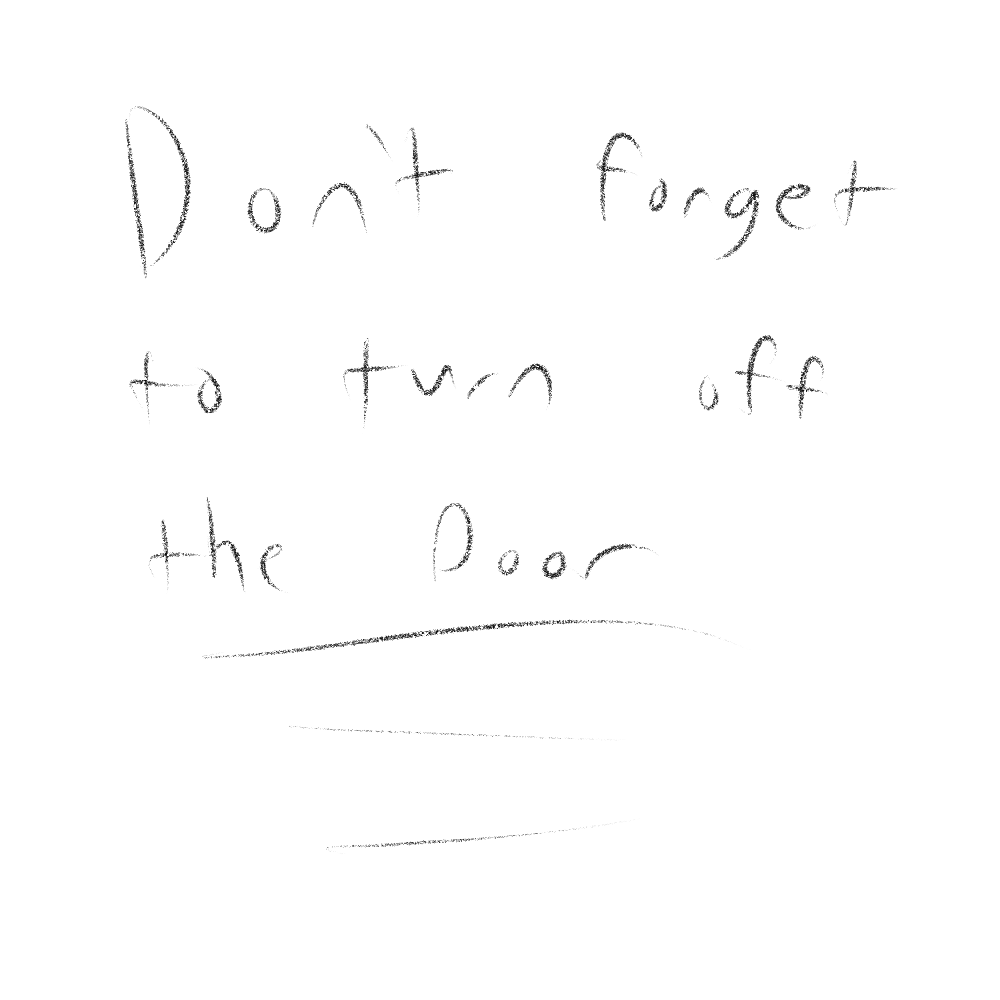 Don't forget
to turn off
the Door